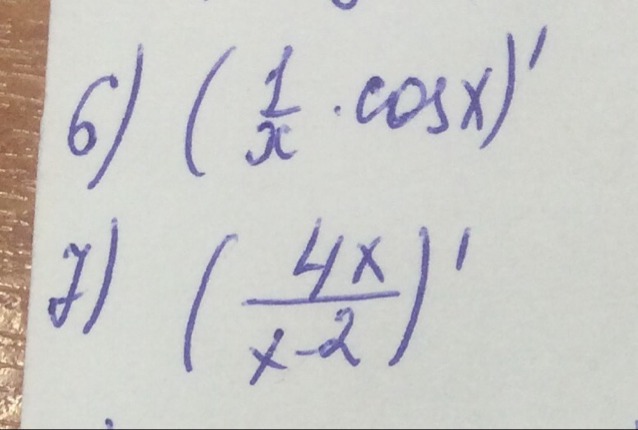 6) (1/x · cosx)'
7) (4x/x-2)'